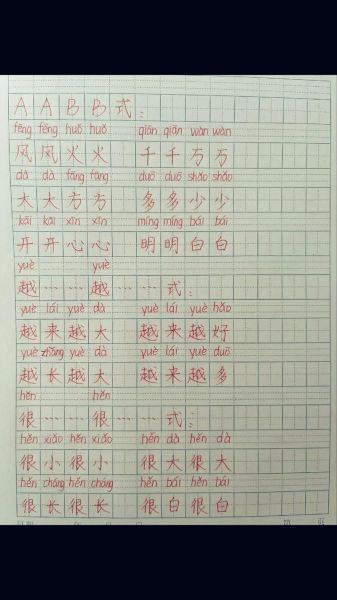 AABB式:
fēng fēng huǒ huǒ qiān qiān wàn wàn
风风火火 千千万万
dà dà fāng fāng duō duō shǎo shǎo
大大方方 多多少少
kāi kāi xīn xīn míng míng bái bái
开开心心 明明白白
yuè yuè
越……越……式:
yuè lái yuè dà yuè lái yuè hǎo
越来越大 越来越好
yuè zhǎng yuè dà yuè lái yuè duō
越长越大 越来越多
hěn hěn
很……很……式:
hěn xiǎo hěn xiǎo hěn dà hěn dà
很小很小 很大很大
hěn cháng hěn cháng hěn bái hěn bái
很长很长 很白很白